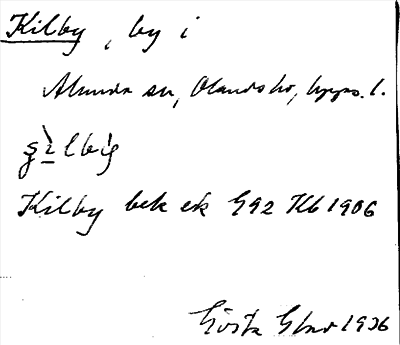 Kilby, by i
Alunda sn, Olands hd, Upps. l.
Kilby bek ek G92 Kb 1906
Gösta 1906